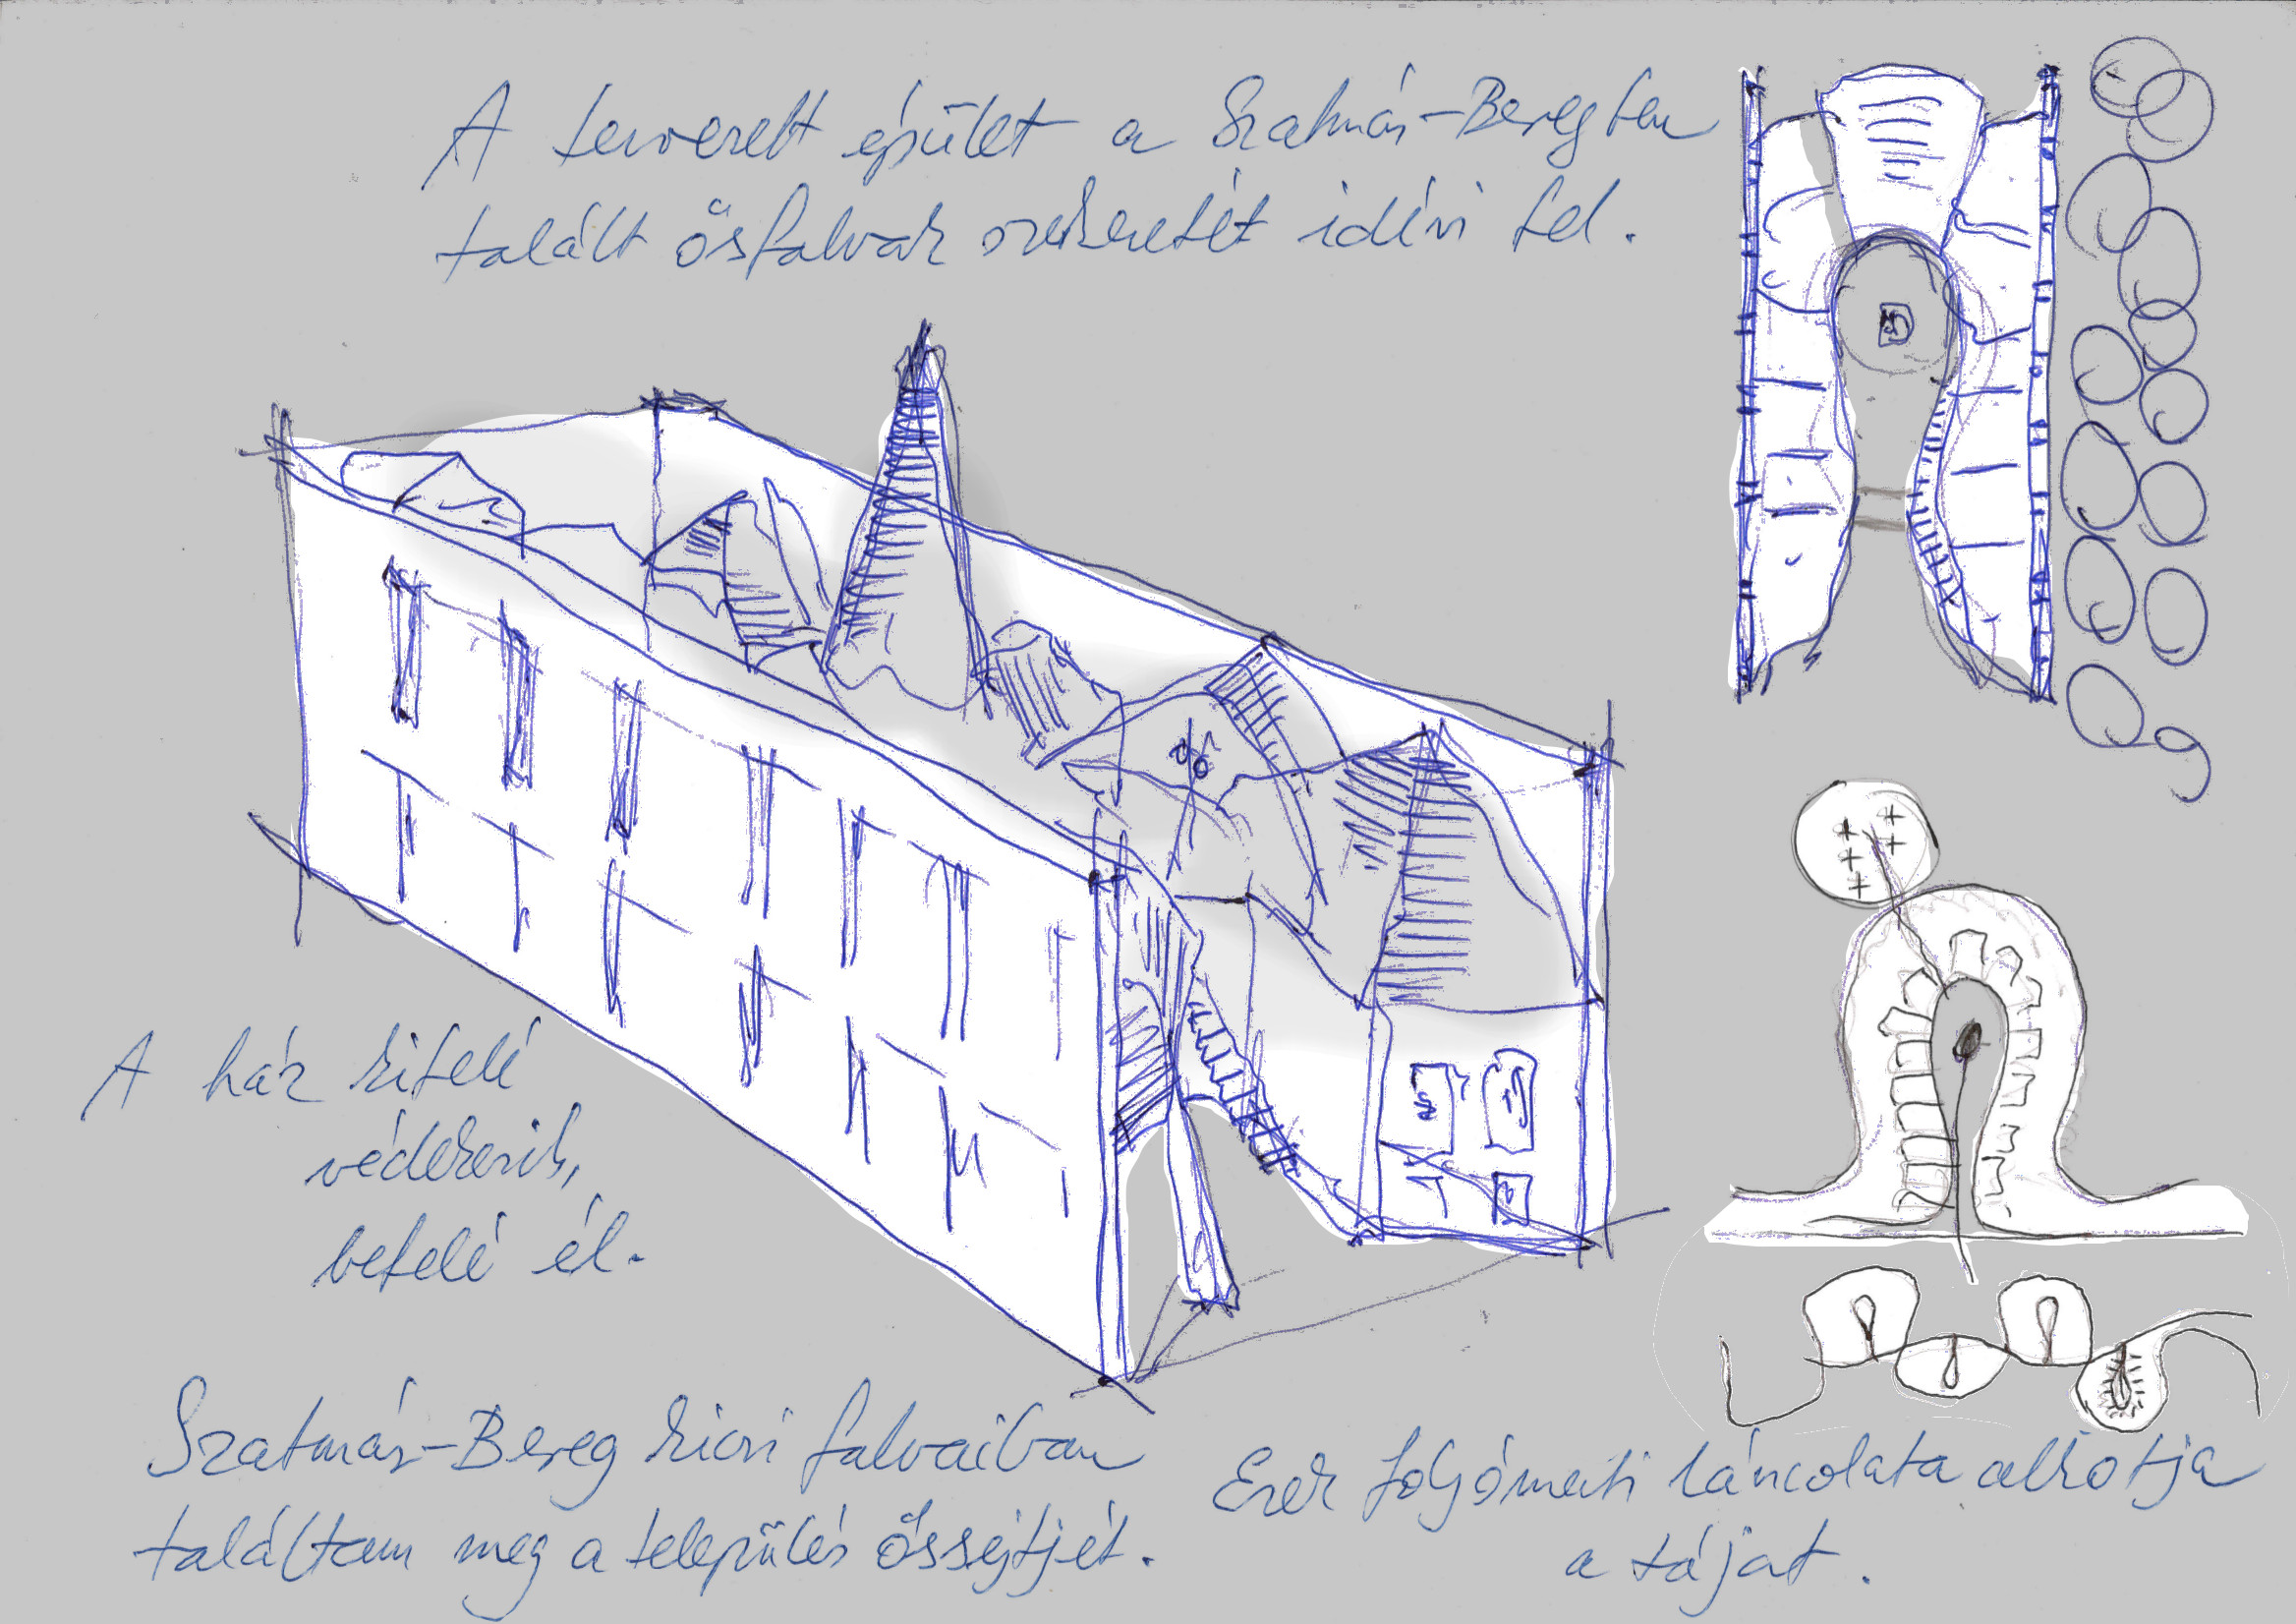 A tervezett épület a Szatmár-Bereg-ben
talált ősfalvak szerkezetét idézi fel.
A ház kifelé
védekezik,
befelé él.
Szatmár-Bereg kicsi falvaiban
találtam meg a település őssejtjét.
Ezek folyómenti láncolata alkotja
a tájat.